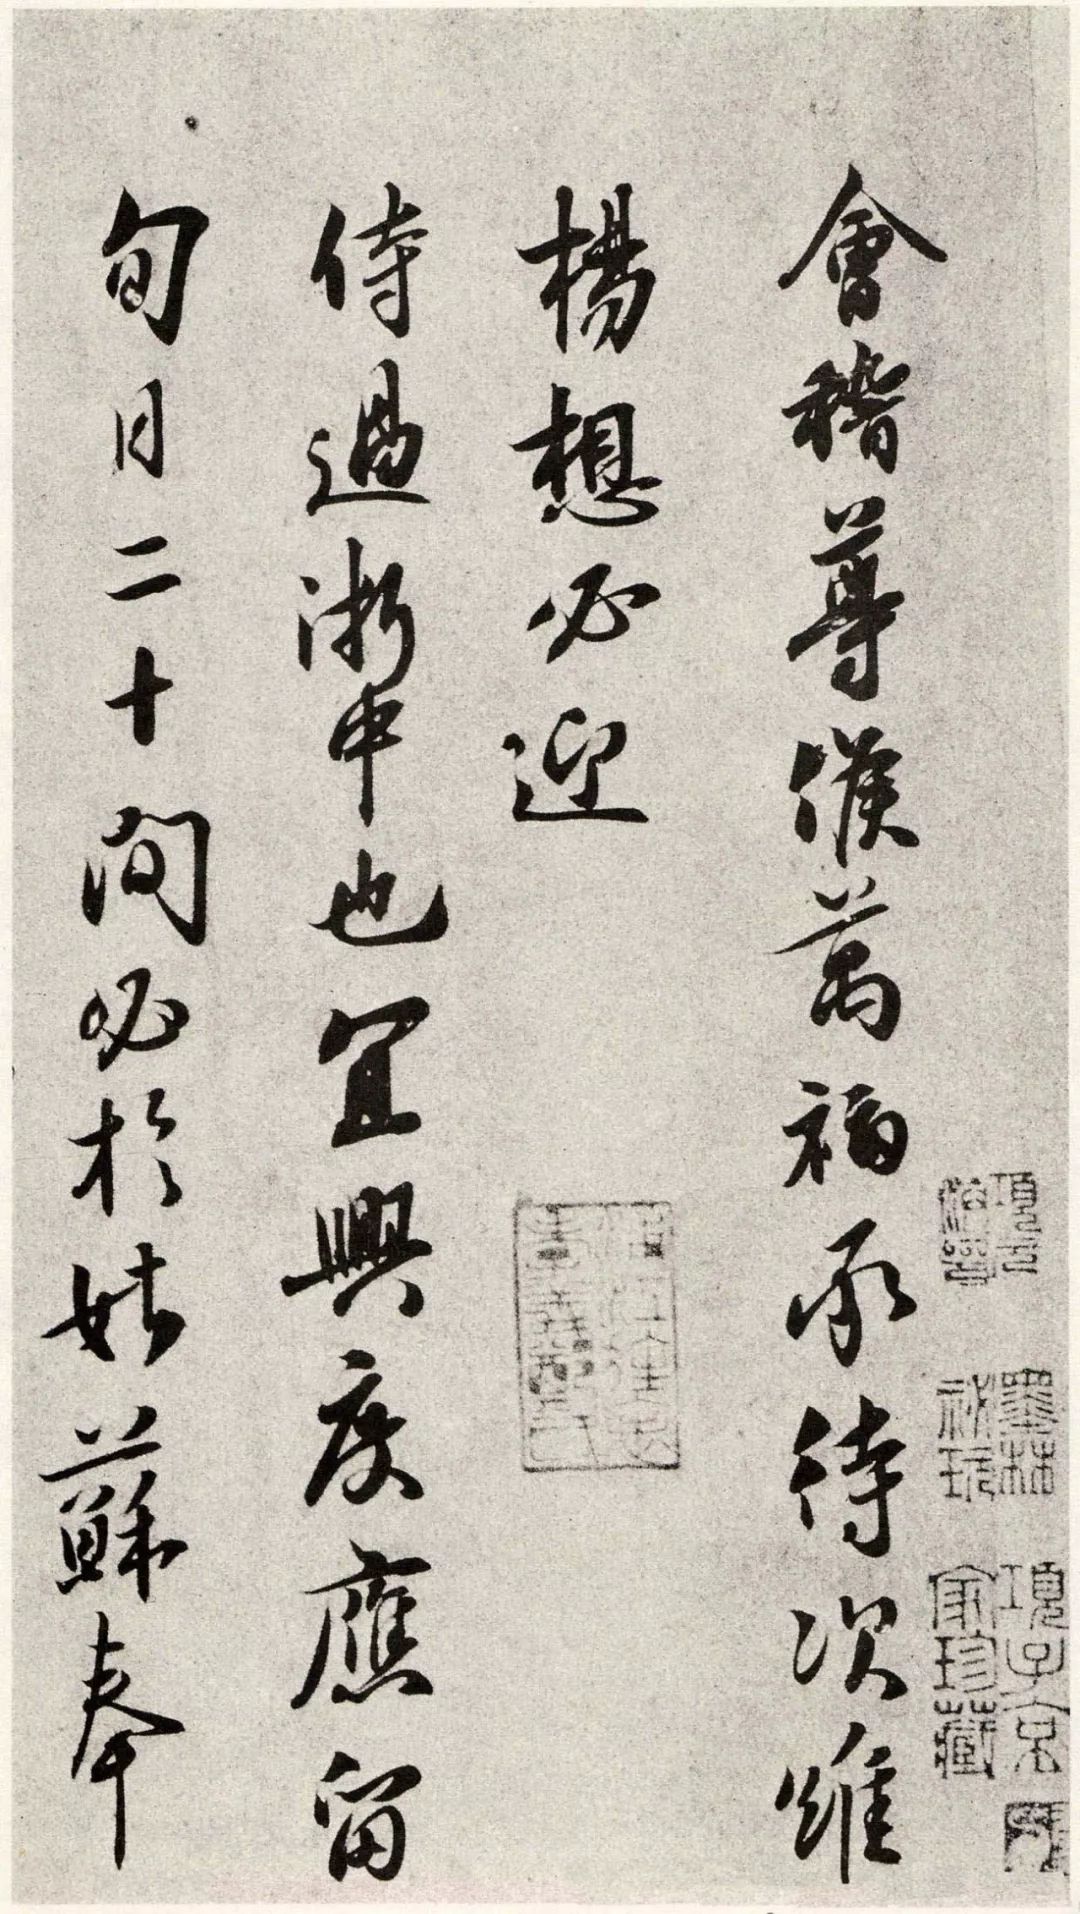 會稽尊候萬福承待次維
楊想必迎
侍過浙中也宜興度應留
旬日二十間必於姑蘇奉
項元
墨林
祕玩
項子京
家珍藏